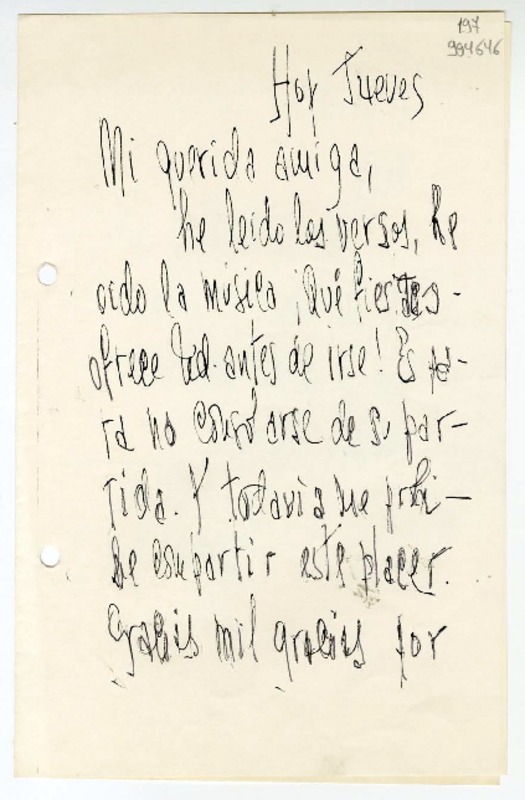 197
994646
Hoy Jueves
Mi querida amiga,
he leido los versos, he
oido la música ¡Qué fiestas
ofrece Ud. antes de irse! Es pa-
ra no consolarse de su par-
tida. Y todavia me prohi-
be compartir este placer.
Gracias mil gracias por